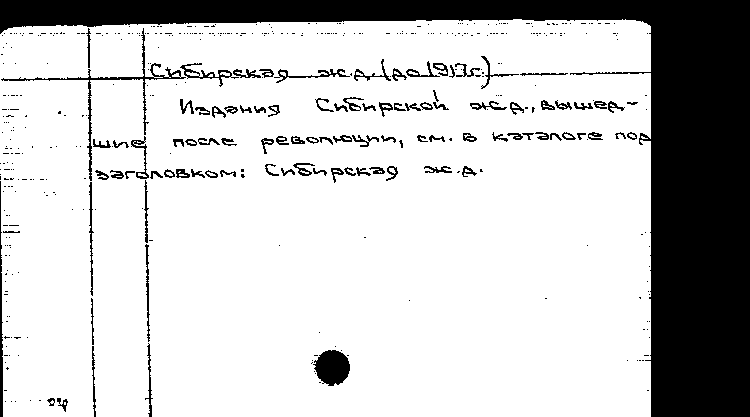 Сибирская ж.д. (до 1917г.)
Издания Сибирской ж.д., вышед-
шие после революции, см. в каталоге под
заголовком: Сибирская ж.д.